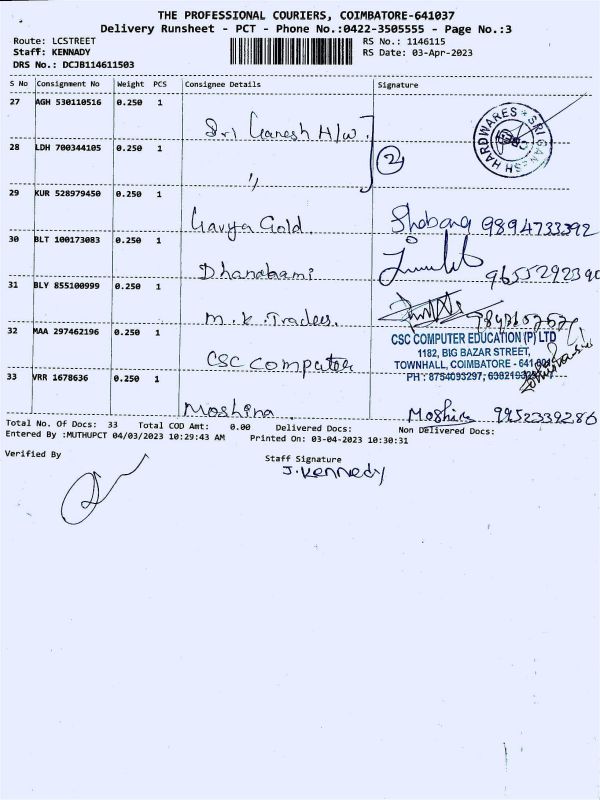 THE PROFESSIONAL COURIERS, COIMBATORE-641037
Delivery Runsheet - PCT - Phone No.:0422-3505555 - Page No.:3
Route: LCSTREET
Staff: KENNADY
DRS No.: DCJB114611503
RS No.: 1146115
RS Date: 03-Apr-2023
S No Consignment No Weight PCS Consignee Details Signature
27 AGH 530110516 0.250 1
Sri Ganesh H/w.
SRI GANESH HARDWARES
28 LDH 700344105 0.250 1
2
"
29 KUR 528979450 0.250 1
Gavya Gold. Shobana 9894733392
30 BLT 100173083 0.250 1
Dhanabami 9655292390
31 BLY 855100999 0.250 1
M.K. Traders.
32 MAA 297462196 0.250 1
CSC Computer
CSC COMPUTER EDUCATION (P) LTD
1182, BIG BAZAR STREET,
TOWNHALL, COIMBATORE - 641 001
PH : 8754093297,
33 VRR 1678636 0.250 1
Moshina. Moshina 9952339286
Total No. Of Docs: 33 Total COD Amt: 0.00 Delivered Docs: Non Delivered Docs:
Entered By :MUTHUPCT 04/03/2023 10:29:43 AM Printed On: 03-04-2023 10:30:31
Verified By
Staff Signature
J. Kennedy